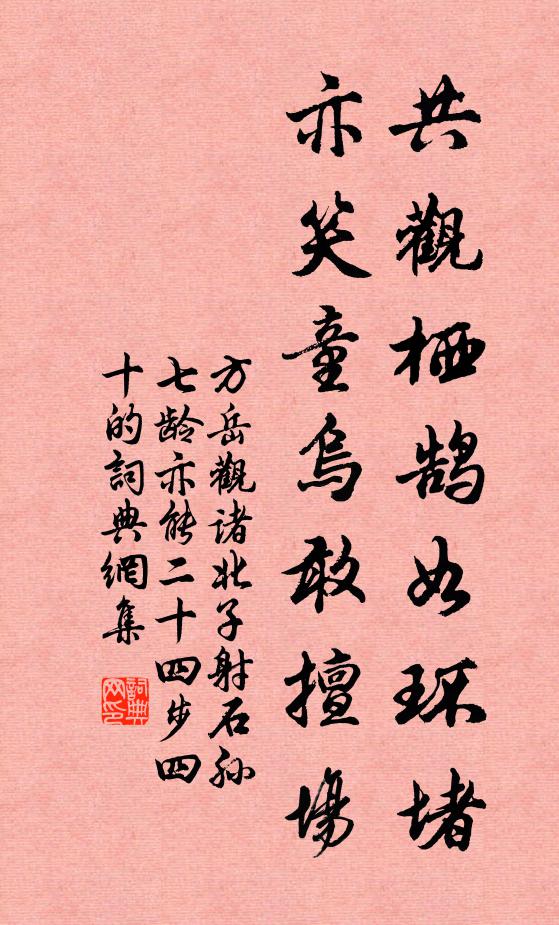 共觀栖鵠如环堵
亦笑童烏敢擅場
方岳觀諸北子射石孫
七齡亦能二十四步四
十的詞典網集
詞典
网印